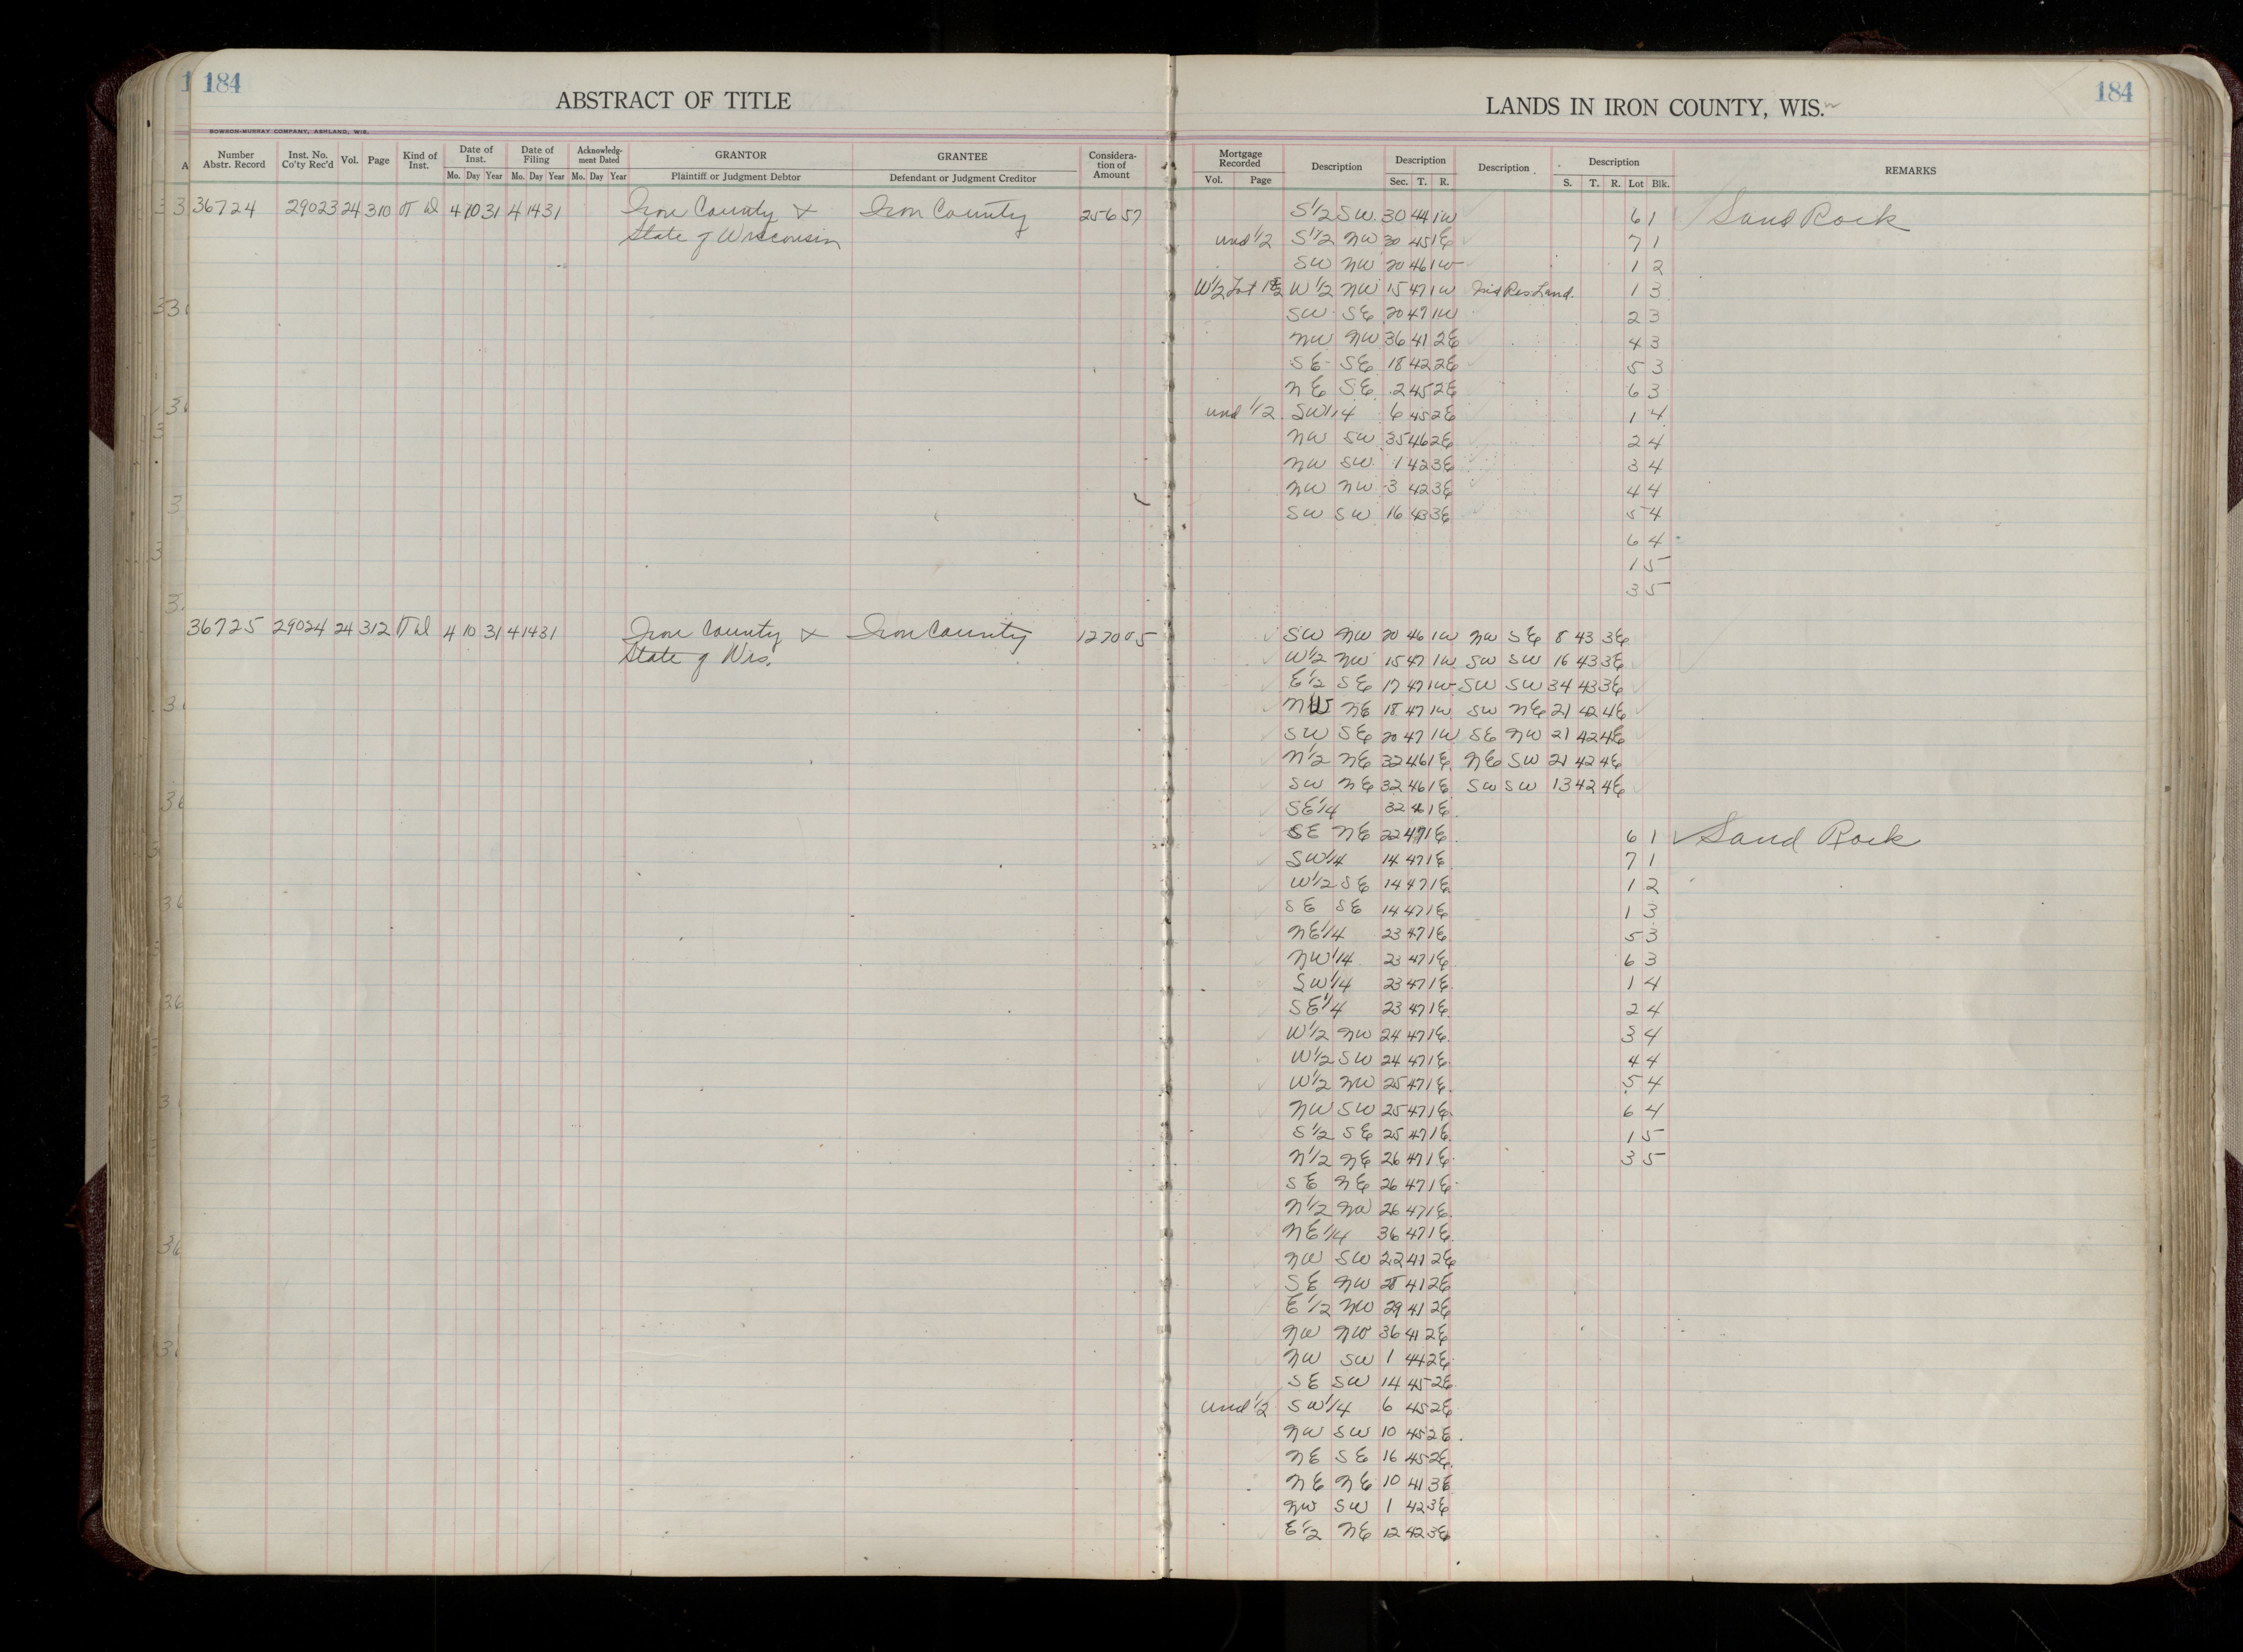 184
ABSTRACT OF TITLE
BOWRON-MURRAY COMPANY, ASHLAND, WIS.
Number Abstr. Record Inst. No. Co'ty Rec'd Vol. Page Kind of Inst. Date of Inst. Mo. Day Year Date of Filing Mo. Day Year Acknowledg-ment Dated Mo. Day Year GRANTOR Plaintiff or Judgment Debtor GRANTEE Defendant or Judgment Creditor Considera-tion of Amount
36724 29023 24 310 T D 4 10 31 4 14 31 Iron County & Iron County 256 57
State of Wisconsin
36725 29024 24 312 T D 4 10 31 4 14 31 Iron County & Iron County 1270 05
State of Wis.
184
LANDS IN IRON COUNTY, WIS.
Mortgage Recorded Vol. Page Description Description Sec. T. R. Description Description S. T. R. Lot Blk. REMARKS
S1/2 SW 30 44 1W 6 1 Sand Rock
und 1/2 S1/2 NW 30 45 1E 7 1
SW NW 20 46 1W 1 2
W1/2 Lot 1 & 2 W1/2 NW 15 47 1W Ind Res Land. 1 3
SW SE 20 47 1W 2 3
NW NW 36 41 2E 4 3
SE SE 18 42 2E 5 3
NE SE 2 45 2E 6 3
und 1/2 SW1/4 6 45 2E 1 4
NW SW 35 46 2E 2 4
NW SW 1 42 3E 3 4
NW NW 3 42 3E 4 4
SW SW 16 43 3E 5 4
6 4
1 5
3 5
SW NW 20 46 1W NW SE 8 43 3E
W1/2 NW 15 47 1W SW SW 16 43 3E
E1/2 SE 17 47 1W SW SW 34 43 3E
NW NE 18 47 1W SW NE 21 42 4E
SW SE 20 47 1W SE NW 21 42 4E
N1/2 NE 32 46 1E NE SW 21 42 4E
SW NE 32 46 1E SW SW 13 42 4E
SE1/4 32 46 1E
SE NE 22 47 1E 6 1 Sand Rock
SW1/4 14 47 1E 7 1
W1/2 SE 14 47 1E 1 2
SE SE 14 47 1E 1 3
NE1/4 23 47 1E 5 3
NW1/4 23 47 1E 6 3
SW1/4 23 47 1E 1 4
SE1/4 23 47 1E 2 4
W1/2 NW 24 47 1E 3 4
W1/2 SW 24 47 1E 4 4
W1/2 NW 25 47 1E 5 4
NW SW 25 47 1E 6 4
S1/2 SE 25 47 1E 1 5
N1/2 NE 26 47 1E 3 5
SE NE 26 47 1E
N1/2 NW 26 47 1E
NE1/4 36 47 1E
NW SW 22 41 2E
SE NW 28 41 2E
E1/2 NW 29 41 2E
NW NW 36 41 2E
NW SW 1 44 2E
SE SW 14 45 2E
und 1/2 SW1/4 6 45 2E
NW SW 10 45 2E
NE SE 16 45 2E
NE NE 10 41 3E
NW SW 1 42 3E
E1/2 NE 12 42 3E